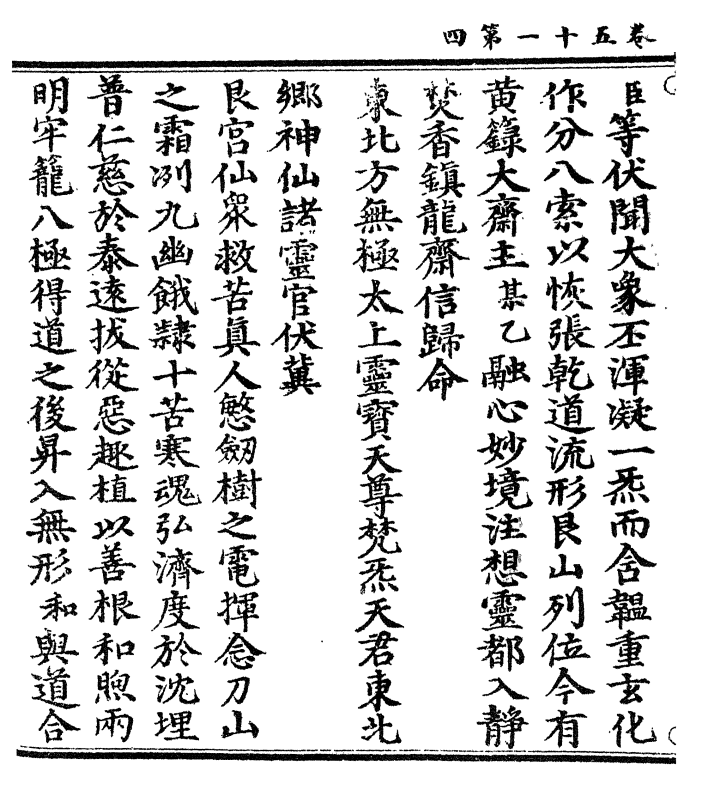 卷五十一第四
臣等伏聞大象丕渾凝一炁而含韞重玄化
作分八索以恢張乾道流形艮山列位今有
黃籙大齋主某乙融心妙境注想靈都入靜
焚香鎮龍齋信歸命
東北方無極太上靈寶天尊梵炁天君東北
鄉神仙諸靈官伏冀
艮宮仙眾救苦真人慜劒樹之電揮念刀山
之霜冽九幽餓隸十苦寒魂弘濟度於沈埋
普仁慈於泰遠拔從惡趣植以善根和煦雨
明牢籠八極得道之後昇入無形和與道合